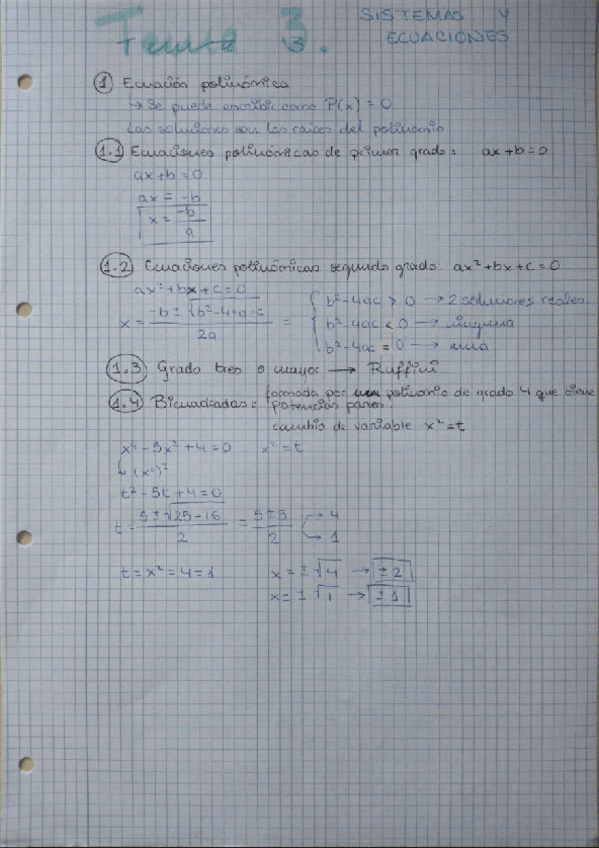 Tema 3.
SISTEMAS Y
ECUACIONES
1 Ecuación polinómica
↳ Se puede escribir como P(x) = 0
Las soluciones son las raíces del polinomio
1.1 Ecuaciones polinómicas de primer grado: ax+b=0
ax+b=0
ax = -b
x = -b/a
1.2 Ecuaciones polinómicas segundo grado: ax²+bx+c=0
ax²+bx+c=0
x = (-b ± √(b²-4·a·c))/2a =
b²-4ac > 0 → 2 soluciones reales
b²-4ac < 0 → ninguna
b²-4ac = 0 → una
1.3 Grado tres o mayor → Ruffini
1.4 Bicuadradas: formada por un polinomio de grado 4 que tiene
potencias pares.
cambio de variable x²=t
x⁴-5x²+4=0 x²=t
↳(x²)²
t²-5t+4=0
t = (5±√(25-16))/2 = (5±3)/2 → 4
→ 1
t=x²=4=1 x=±√4 → ±2
x=±√1 → ±1